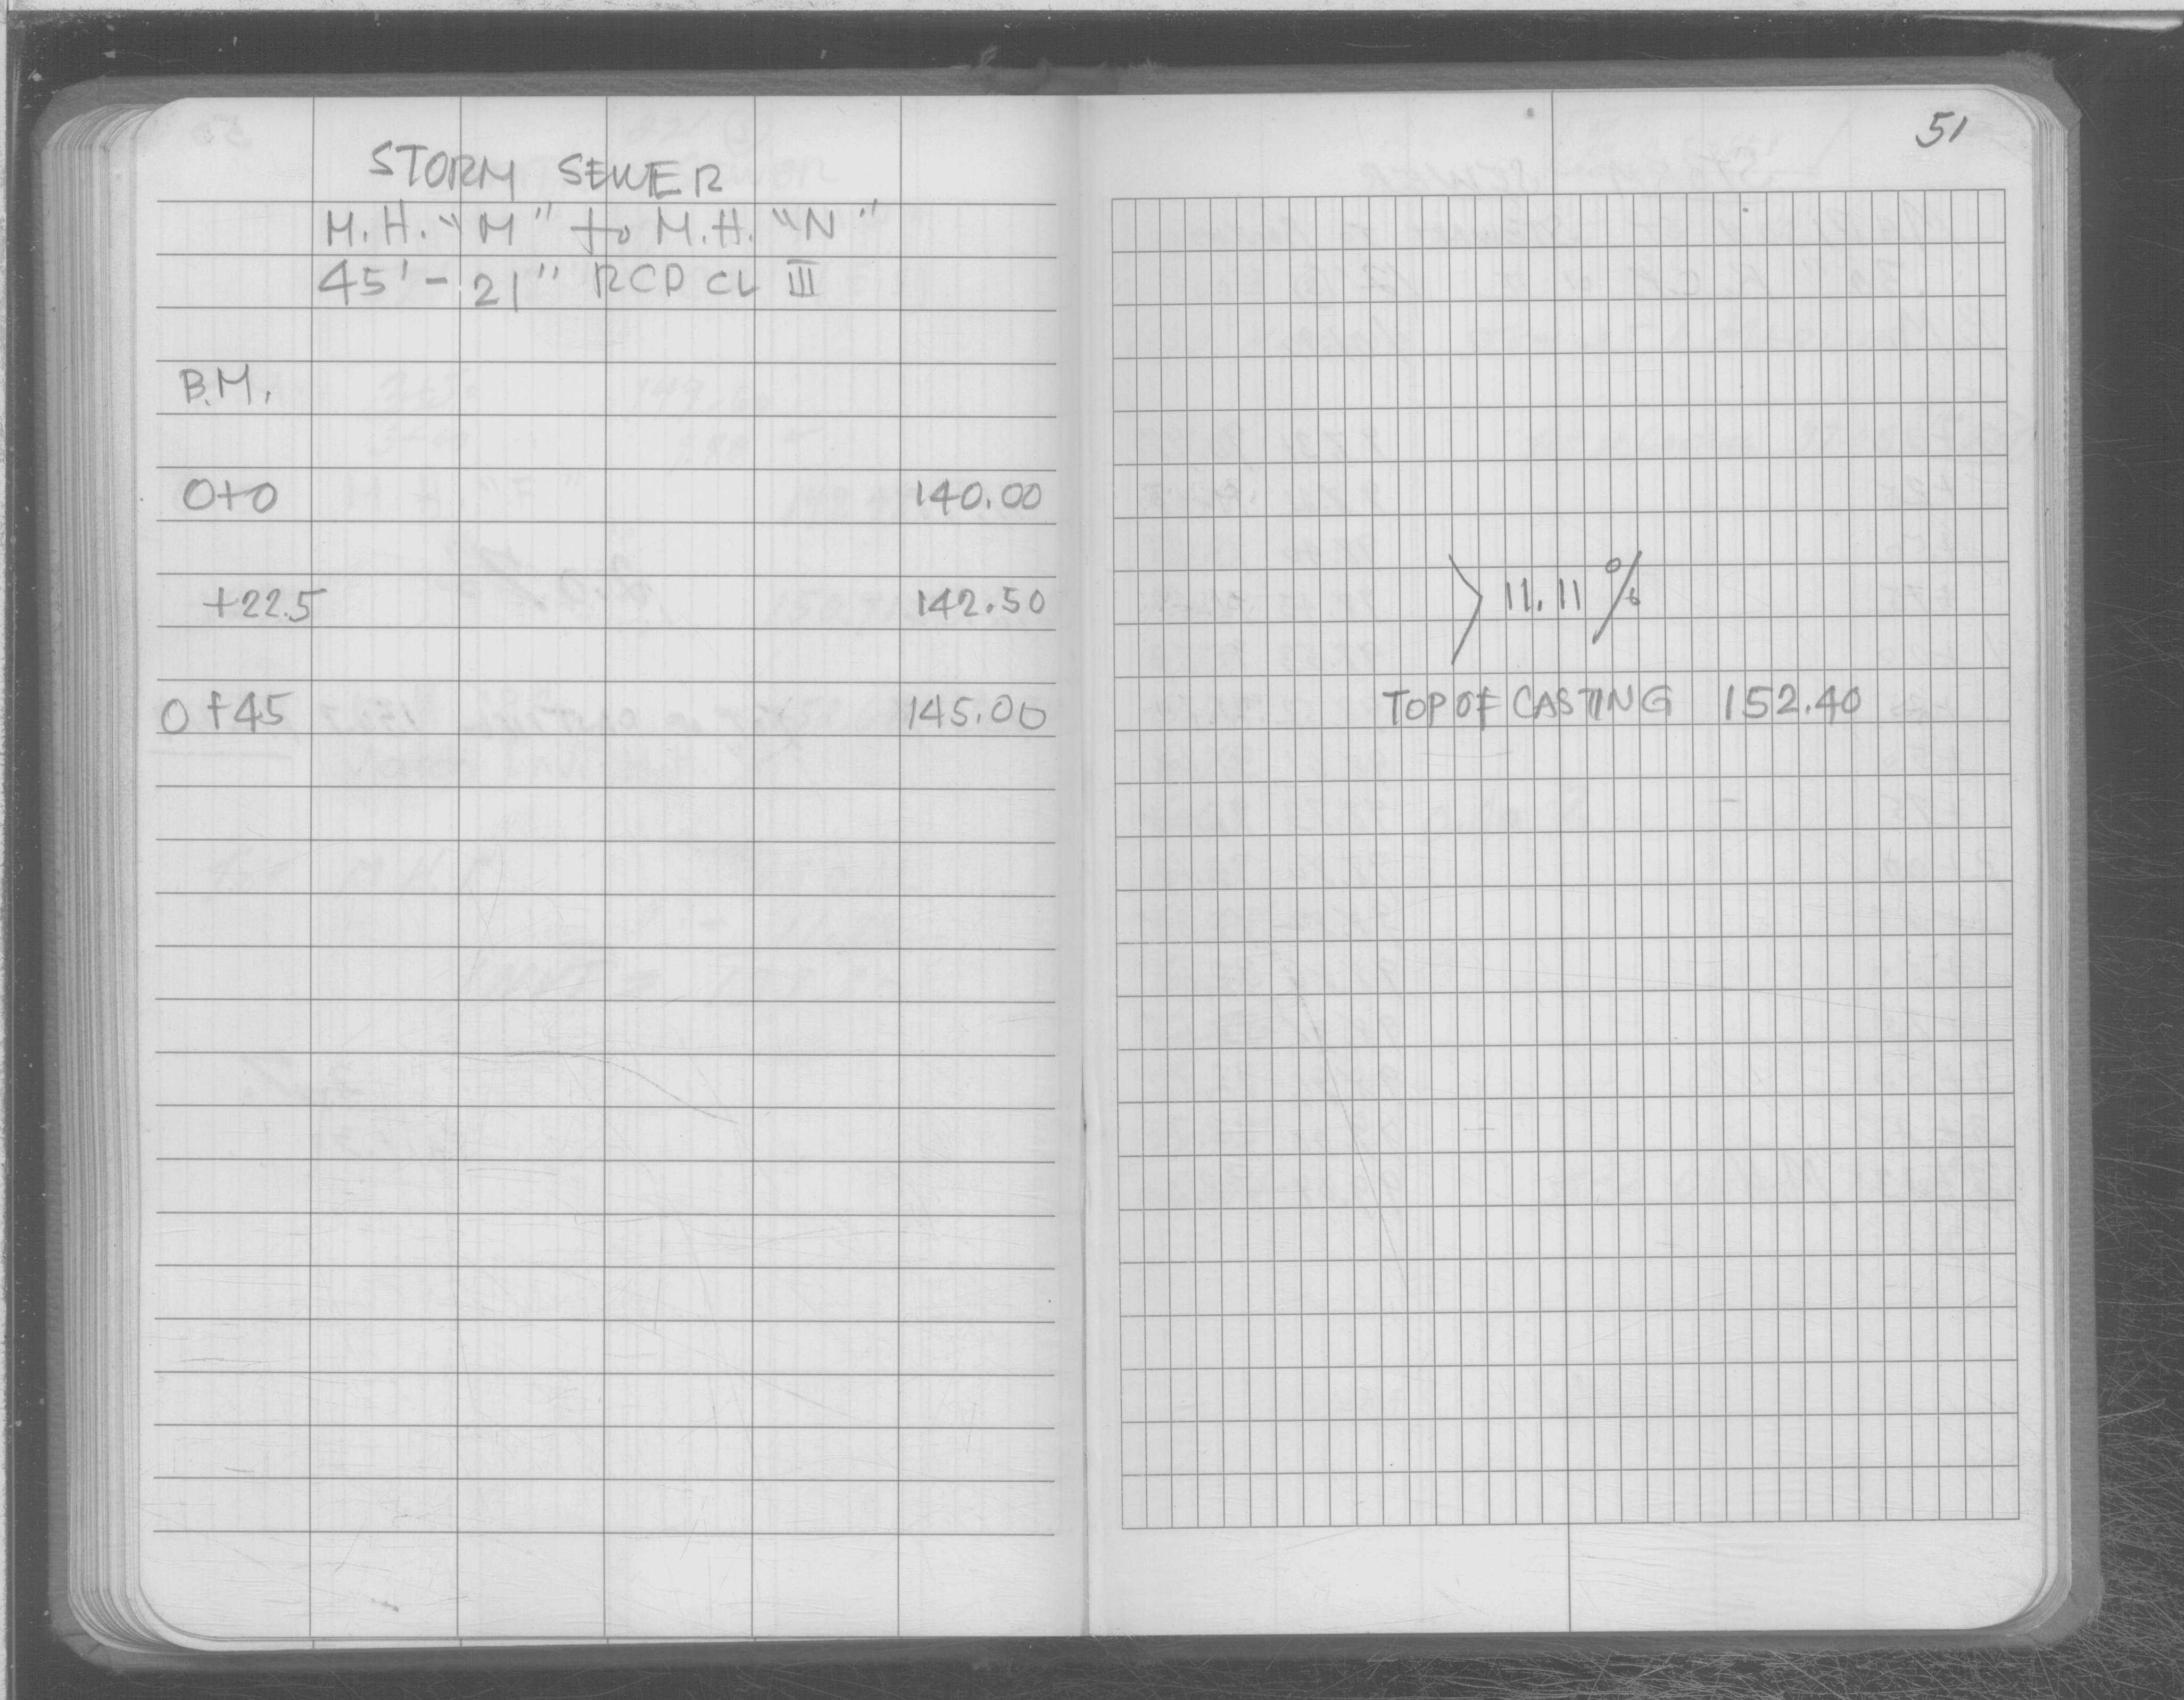 STORM SEWER
M.H. "M" to M.H. "N"
45' - 21" RCP CL III
B.M.
0+0 140.00
+22.5 142.50
0+45 145.00
51
11.11 %
TOP OF CASTING 152.40